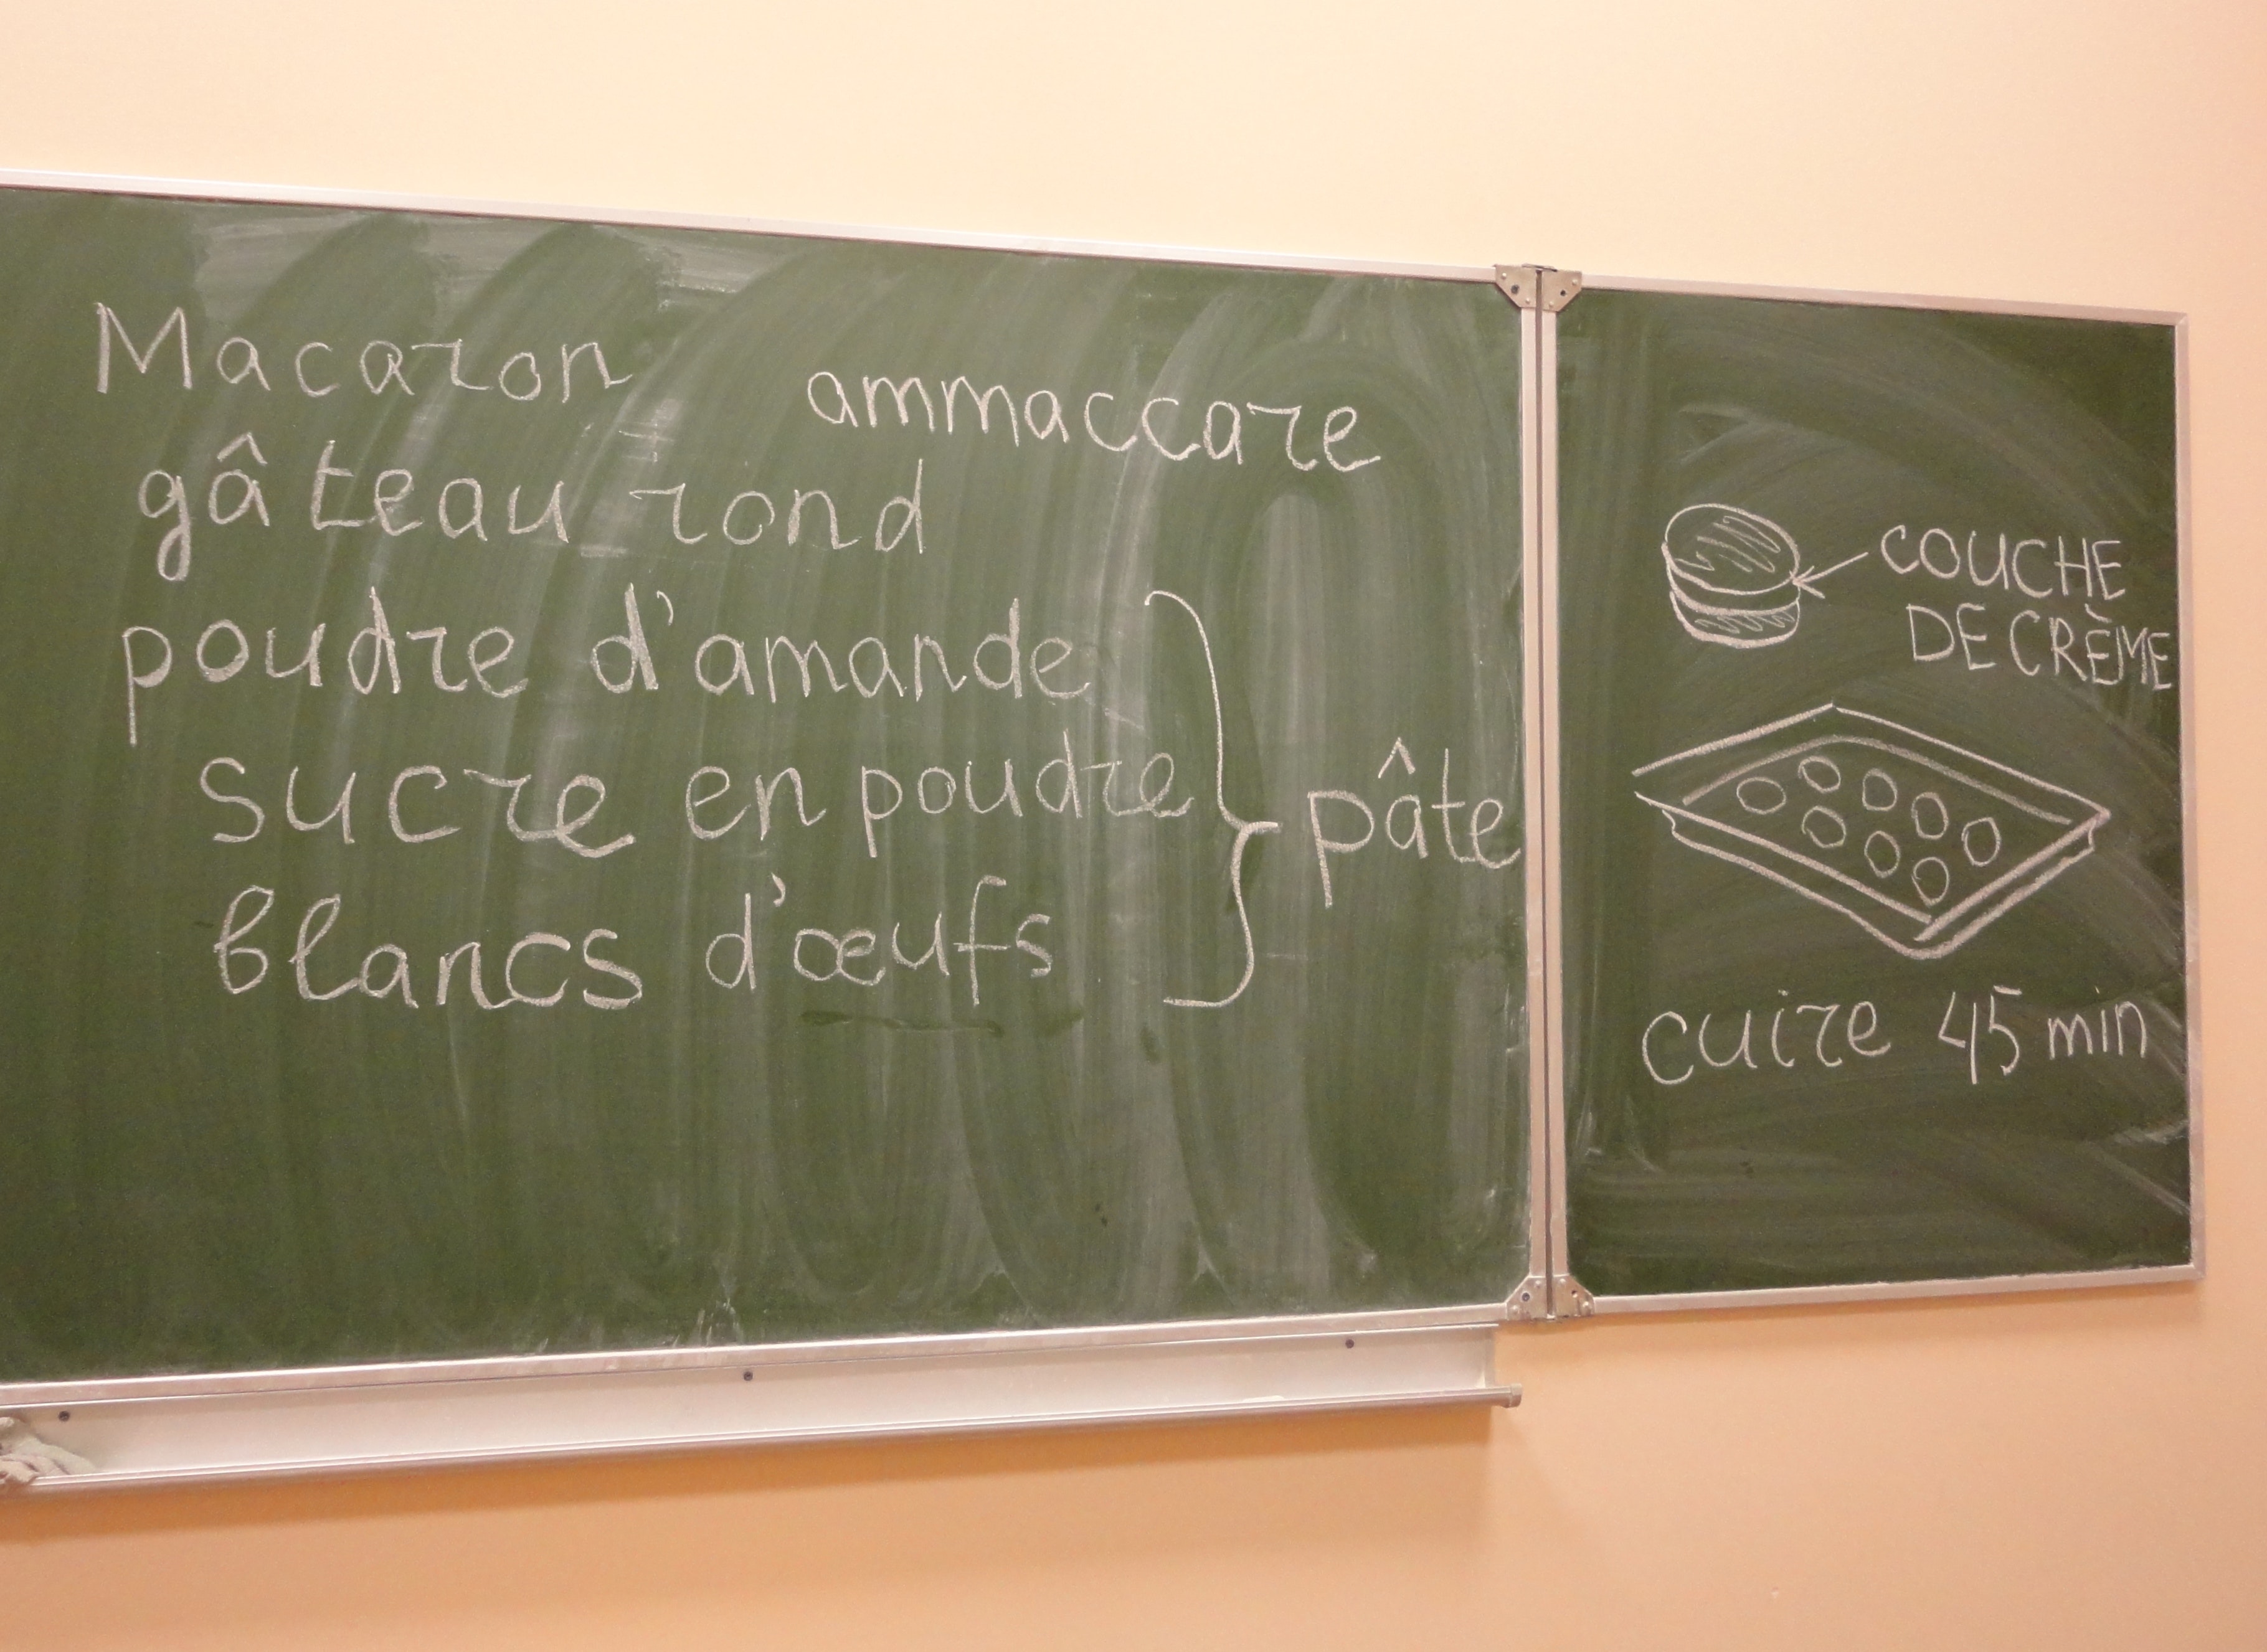 Macaron
ammaccare
gâteau rond
poudre d'amande
sucre en poudre
blancs d'œufs
pâte
COUCHE
DE CRÈME
cuire 45 min